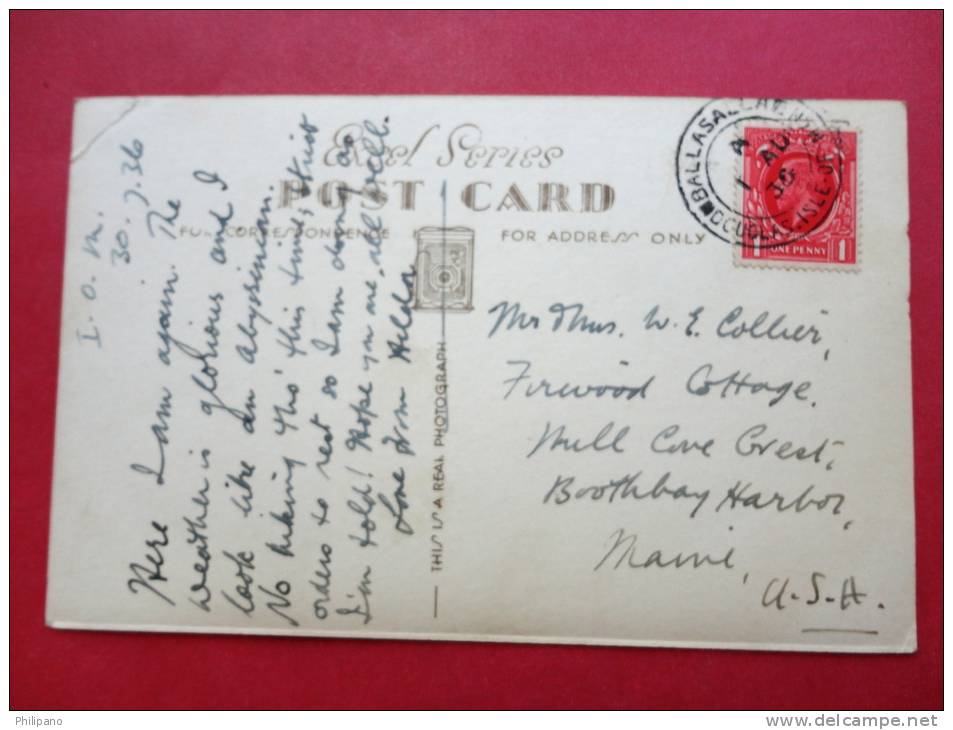 Excel Series
POST CARD
FULL CORRESPONDENCE
FOR ADDRESS ONLY
THIS IS A REAL PHOTOGRAPH
I. O. M.
30. 7. 36
Here I am again. The
weather is glorious and I
look like an Abyssinian.
No hiking tho' this time, strict
orders to rest so I am doing as
I'm told! Hope you are all well.
Love from Hilda
Mr & Mrs. W. E. Collier,
Firwood Cottage.
Mill Cove Crest,
Boothbay Harbor,
Maine,
U.S.A.
BALLASALLA
DOUGLAS ISLE OF
1 AU
36
1 ONE PENNY 1
Philipano
http://www.delcampe.net